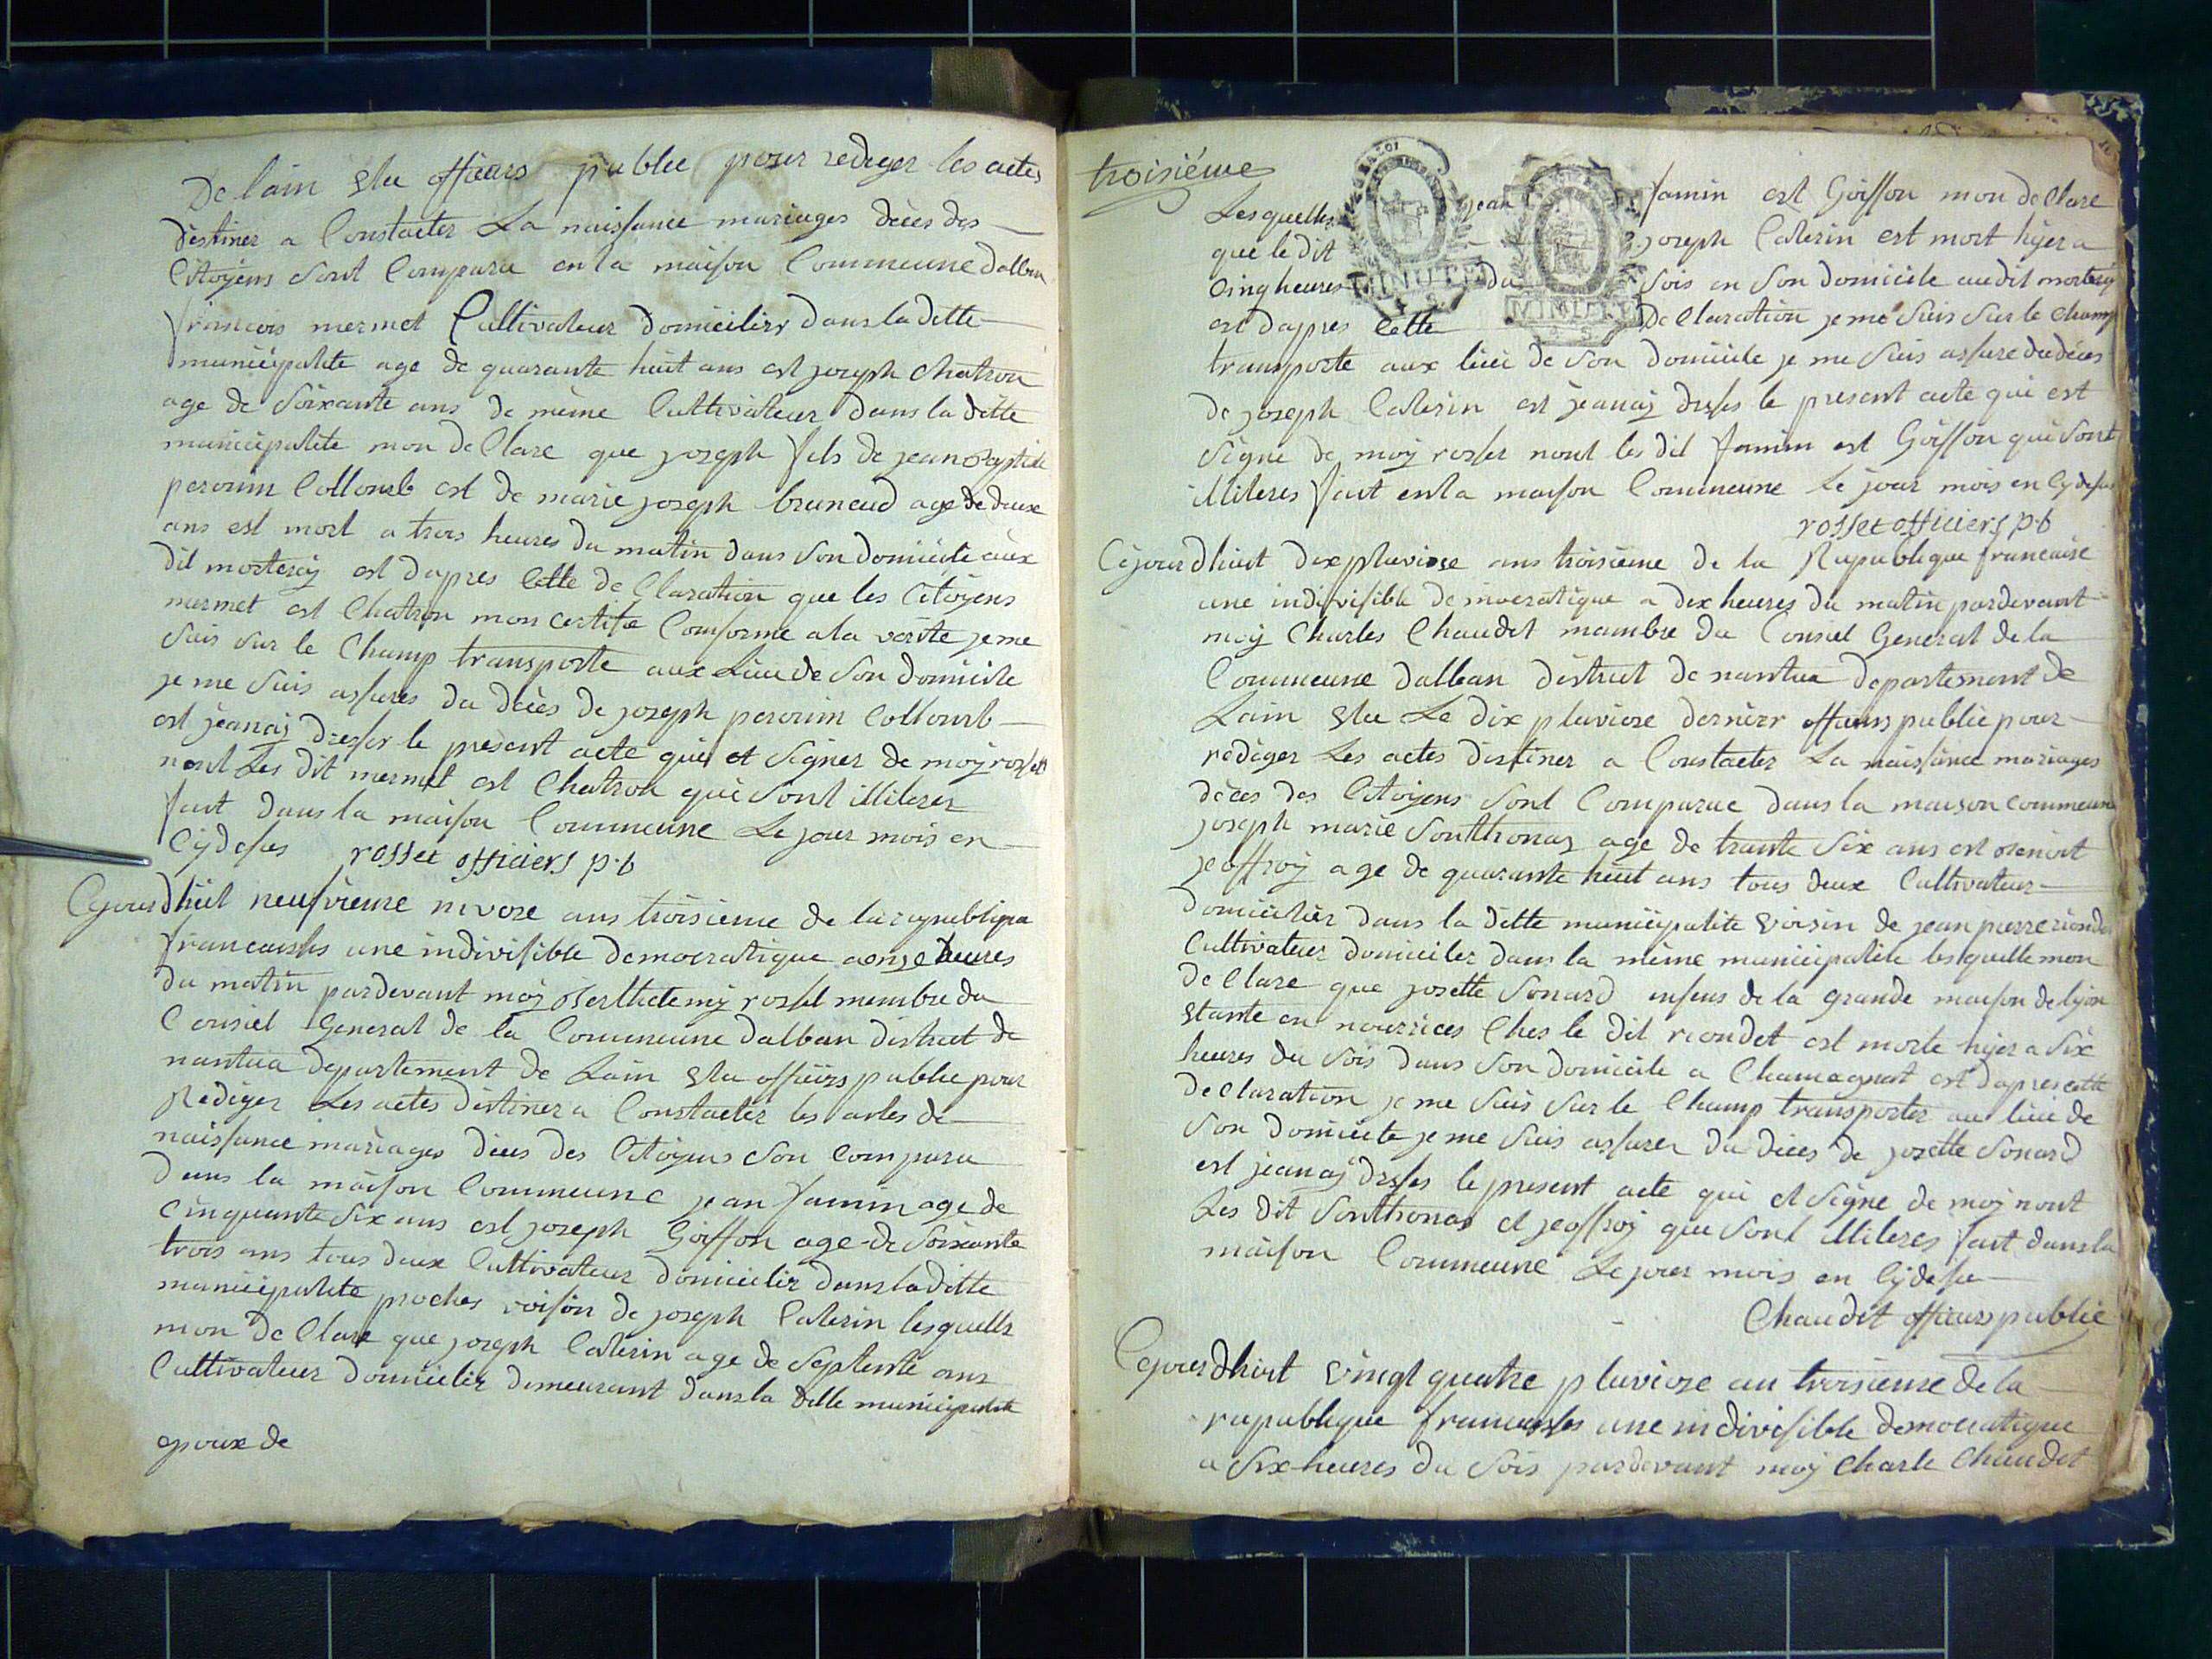 De lain Elu officiers publee pour rediger les actes
destiner a Constaeter La naissance mariages décés des
Citoÿens sont Comparu en la maison Commeune dalban
francois mermet Cultivateur domicilier dans la ditte
municipalite age de quarante huit ans est joseph Chatron
age de Soixante ans de même Cultivateur dans la ditte
municipalite mon de Clare que joseph fils de jean Baptiste
perouin Collomb est de marie joseph bruneud age de deux
ans est mort a trois heures du matin dans son domicile aux
dit morteraÿ est dapres Cette de Claration que les Citoÿens
mermet est Chatron mon certifie Conforme a la verite je me
suis sur le Champ transporte aux Lieu de son domicile
je me suis assures du décès de joseph perouim Collomb
est jeanaÿ dresser le present acte qui et signer de moÿ rosset
nont Les dit mermet est Chatron qui sont illiteres
fait dans la maison Commeune Le jour mois en
Cÿdesus rosset officiers p.b
Cejourdhuit neufvieme nivose ans troisieme de la republique
francaisses une indivisible democratique a onze heures
du matin pardevant moÿ Berthelemÿ rosset membre du
Consiel General de la Commeune dalban district de
nantua departement de Lain Elu officiers publee pour
Rediger Les actes destiner a Constaeter les actes de
naissance mariages dèces des Citoÿens son Comparu
dans la maison Commeune jean famin age de
Cinquante six ans est joseph Goiffon age de soixante
trois ans tous deux Cultivateur domicilier dans la ditte
municipalite proches voisin de joseph Caterin lesquells
mon de Clare que joseph Caterin age de septente ans
Cultivateur domicilier demeurant dans la ditte municipalite
epoux de
troisiéme
Lesquelles jean famin est Goiffon mon de Clare
que le dit joseph Caterin est mort hÿer a
Cinq heures du sois en son domicile audit morteraÿ
est dapres Cette De Claration je me suis sur le champ
MINUTE
MINUTE
transporte aux lieu de son domicile je me suis assure du décès
de joseph Caterin est jeanaÿ dresses le present acte qui est
signe de moÿ rosset nont les dit famin est Goiffon qui sont
illiteres fait en la maison Commeune Le jour mois en Cÿdesus
rosset officiers p.b
Cejourdhuit dix pluviose ans troisieme de la Republique francaise
une indivisible democratique a dix heures du matin pardevant
moÿ Charles Chaudet mambre du Consiel General de la
Commeune dalban district de nantua departement de
Lain Elu Le dix pluviose dernierr officiers publie pour
rediger Les actes distiner a Constaeter La naissance mariages
dèces des Citoÿens sont Comparue dans la maison commeune
joseph marie sonthonas age de trante six ans est Benoit
jeoffroÿ age de quarante huit ans tous deux Cultivateur
domicilier dans la ditte municipalite voisin de jean pierre riondet
Cultivateur domicilier dans la même municipalite lesquelle mon
de Clare que josette sonard enfens de la grande maison de lÿon
Etante en nourrices Ches le dit riondet est morte hÿer a six
heures du sois dans son domicile a Chamagnat est dapres cette
de Claration je me suis sur le Champ transporter au lieu de
son domicile je me suis assurer du dèces de josette sonard
est jeanaÿ dresses le present acte qui et signe de moÿ nont
Les dit sonthonas et jeoffroÿ que sont illiteres fait dans la
maison Commeune Le jour mois en Cÿdesu
Chaudet officiers publie
Cejourdhuit vingt quatre pluviose an troisieme de la
republique francaisses une indivisible democratique
a six heures du sois pardevant moÿ Charle Chaudet